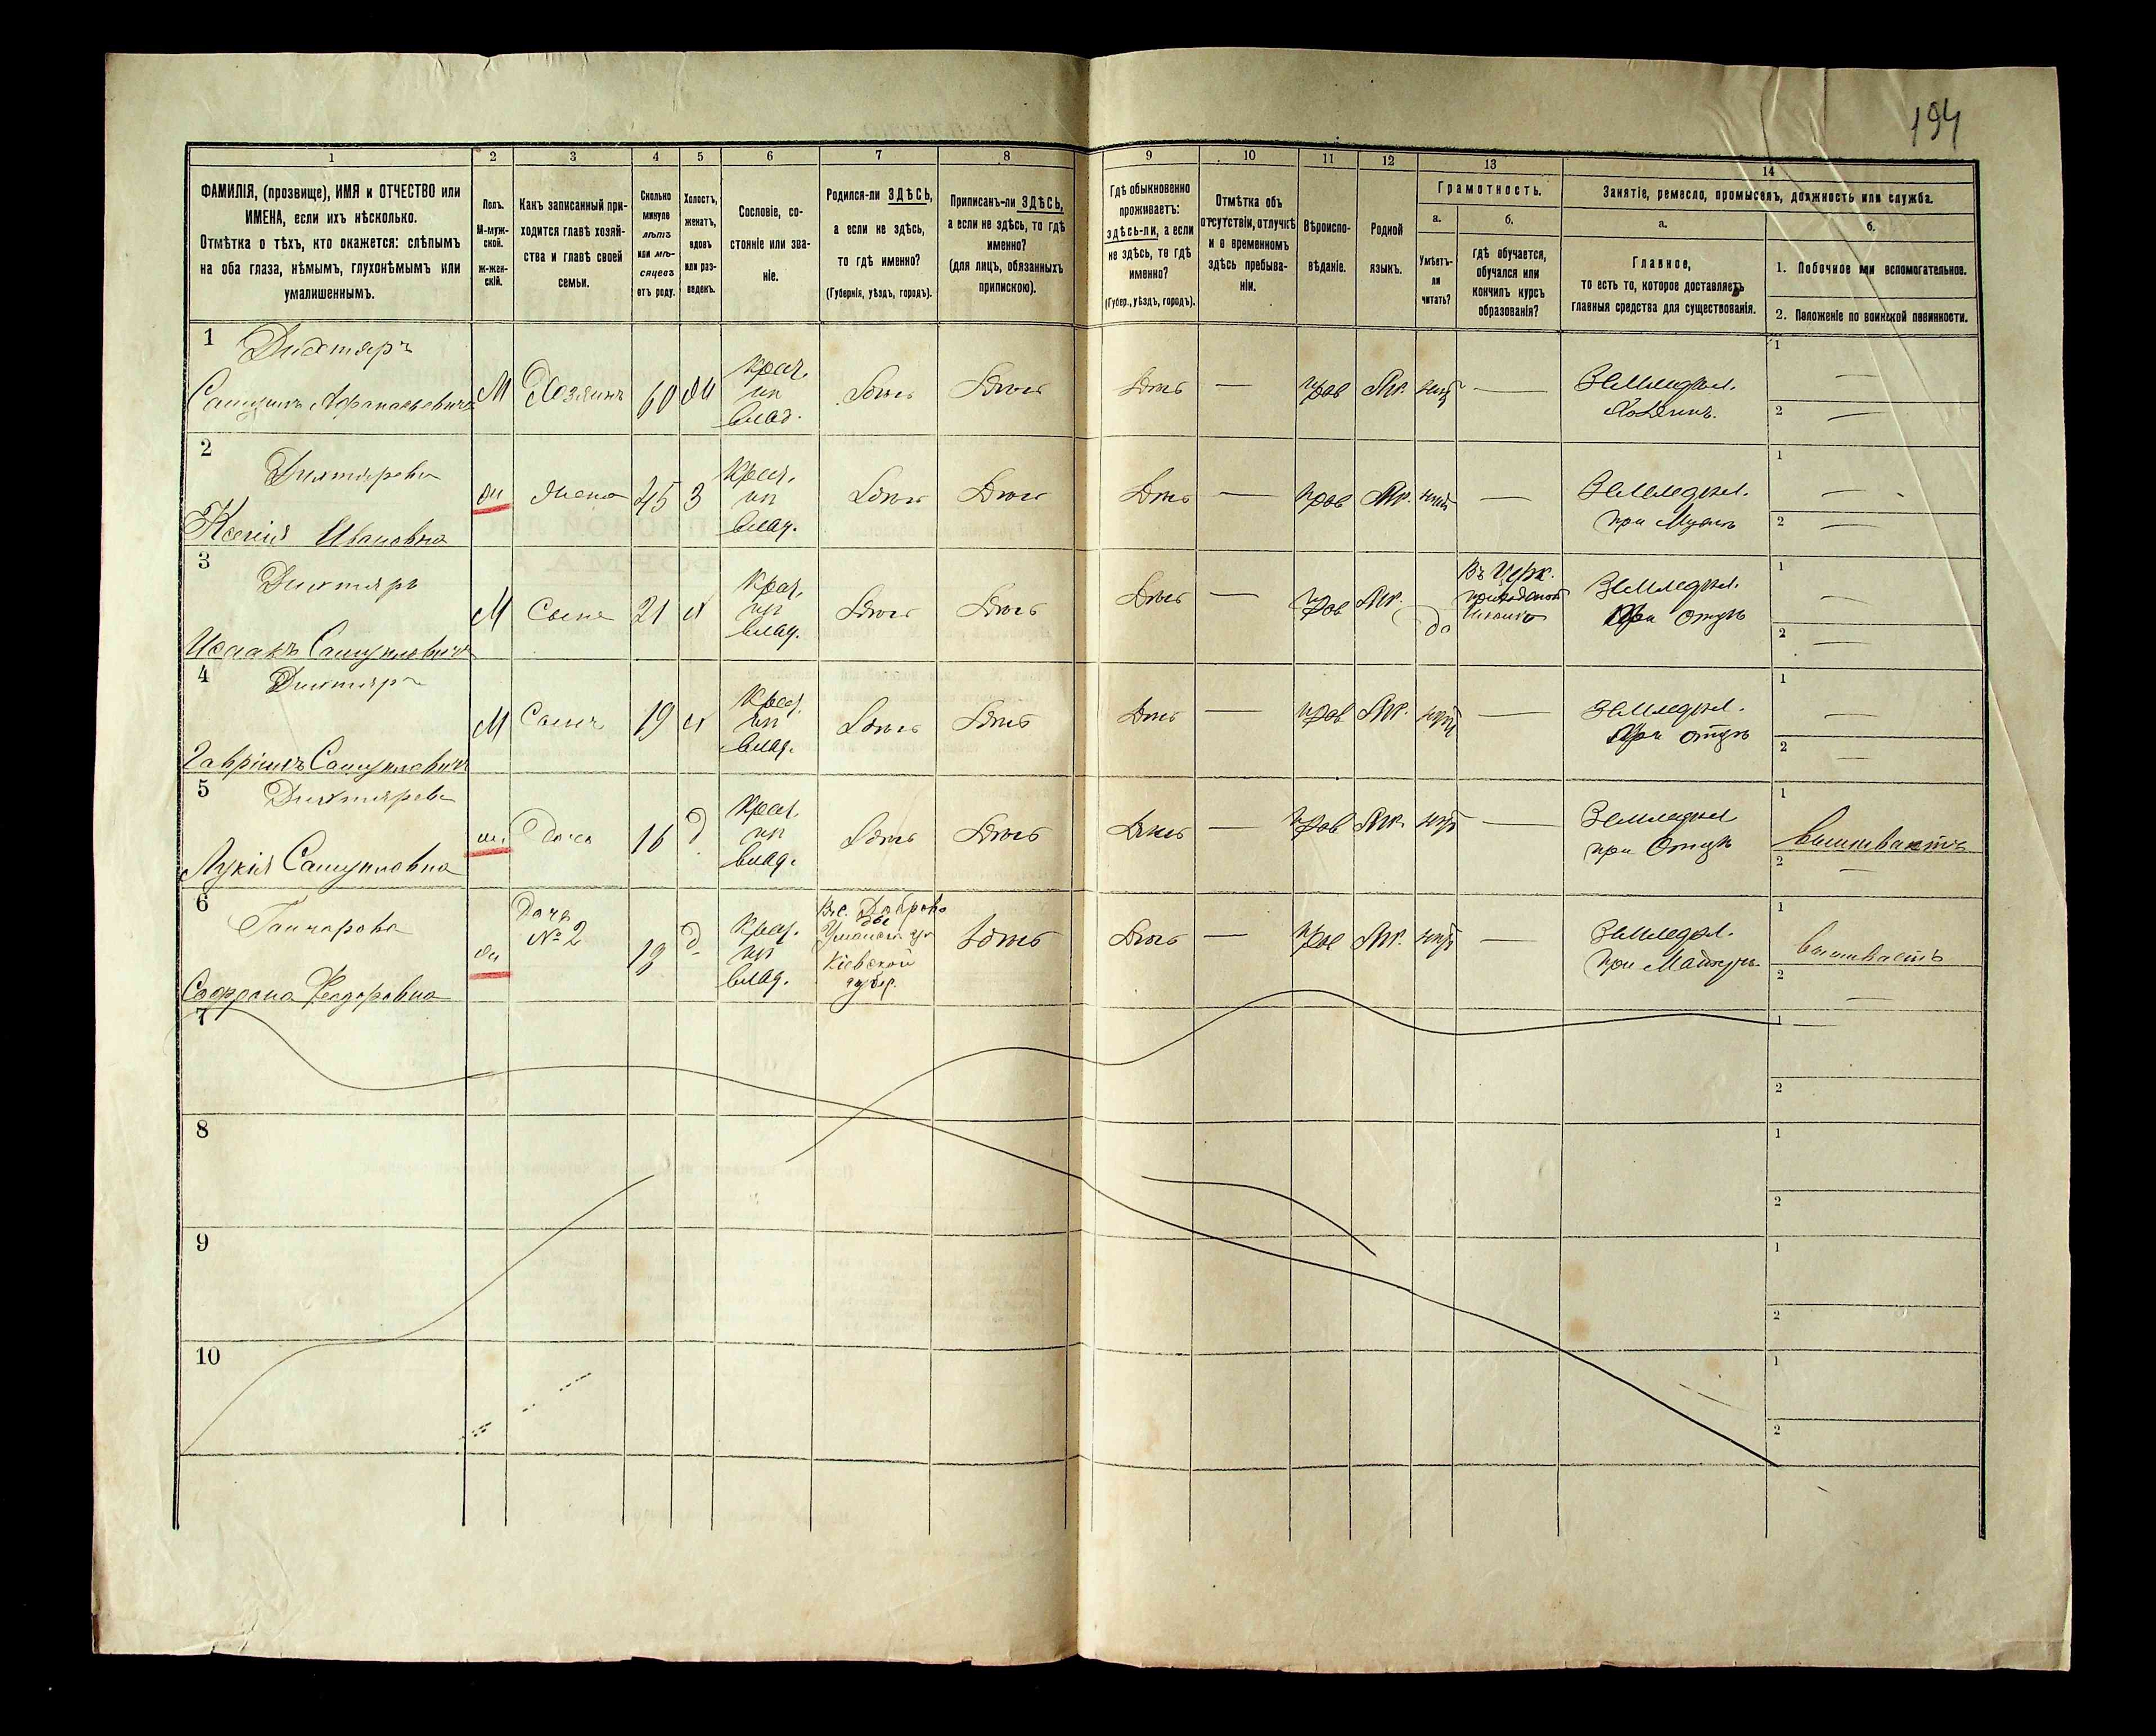 194
1 2 3 4 5 6 7 8 9 10 11 12 13 14
ФАМИЛІЯ, (прозвище), ИМЯ и ОТЧЕСТВО или
ИМЕНА, если ихъ нѣсколько.
Отмѣтка о тѣхъ, кто окажется: слѣпымъ
на оба глаза, нѣмымъ, глухонѣмымъ или
умалишеннымъ.
Полъ.
М-муж-
ской.
ж-жен-
скій.
Какъ записанный при-
ходится главѣ хозяй-
ства и главѣ своей
семьи.
Сколько
минуло
лѣтъ
или мѣ-
сяцевъ
отъ роду.
Холостъ,
женатъ,
вдовъ
или раз-
веденъ.
Сословіе, со-
стояніе или зва-
ніе.
Родился-ли ЗДѢСЬ,
а если не здѣсь,
то гдѣ именно?
(Губернія, уѣздъ, городъ).
Приписанъ-ли ЗДѢСЬ,
а если не здѣсь, то гдѣ
именно?
(для лицъ, обязанныхъ
припискою).
Гдѣ обыкновенно
проживаетъ:
здѣсь-ли, а если
не здѣсь, то гдѣ
именно?
(Губер., уѣздъ, городъ).
Отмѣтка объ
отсутствіи, отлучкѣ
и о временномъ
здѣсь пребыва-
ніи.
Вѣроиспо-
вѣданіе.
Родной
языкъ.
Грамотность.
а.
Умѣетъ-
ли
читать?
б.
гдѣ обучается,
обучался или
кончилъ курсъ
образованія?
Занятіе, ремесло, промыселъ, должность или служба.
а.
Главное,
то есть то, которое доставляетъ
главныя средства для существованія.
б.
1. Побочное или вспомогательное.
2. Положеніе по воинской повинности.
1
Дихтяръ
Самуилъ Афанасьевичъ
М
Хозяинъ
60
крест.
ип
влад.
Здѣсь
Здѣсь
Здѣсь —
прав
Мр.
нѣтъ —
Земледѣл.
Хозяинъ.
1 —
2 —
2
Дихтярева
Ксенія Ивановна
ж
жена
45
З
крест.
ип
влад.
Здѣсь
Здѣсь
Здѣсь —
прав
Мр.
нѣтъ —
Земледѣл.
при Мужѣ
1 —
2 —
3
Дихтяръ
Исаакъ Самуиловичъ
М
Сынъ
21
х
крест.
ип
влад.
Здѣсь
Здѣсь
Здѣсь —
прав
Мр.
да
Въ Церк.
приходской
школѣ
Земледѣл.
При Отцѣ
1 —
2 —
4
Дихтяръ
Гавріилъ Самуиловичъ
М
Сынъ
19
х
крест.
ип
влад.
Здѣсь
Здѣсь
Здѣсь —
прав
Мр.
нѣтъ —
Земледѣл.
При отцѣ
1 —
2 —
5
Дихтярева
Лукія Самуиловна
ж
Дочь
16
д
крест.
ип
влад.
Здѣсь
Здѣсь
Здѣсь —
прав
Мр.
нѣтъ —
Земледѣл
при Отцѣ
1
вышиваетъ
2 —
6
Гончарова
Феодоровна
ж
Дочь
№ 2
д
крест.
ип
влад.
Уманск
Кіевской
губер.
Здѣсь
Здѣсь —
прав
Мр.
нѣтъ —
Земледѣл.
при Матери
1
вышиваетъ
2 —
7
1
2
8
1
2
9
1
2
10
1
2